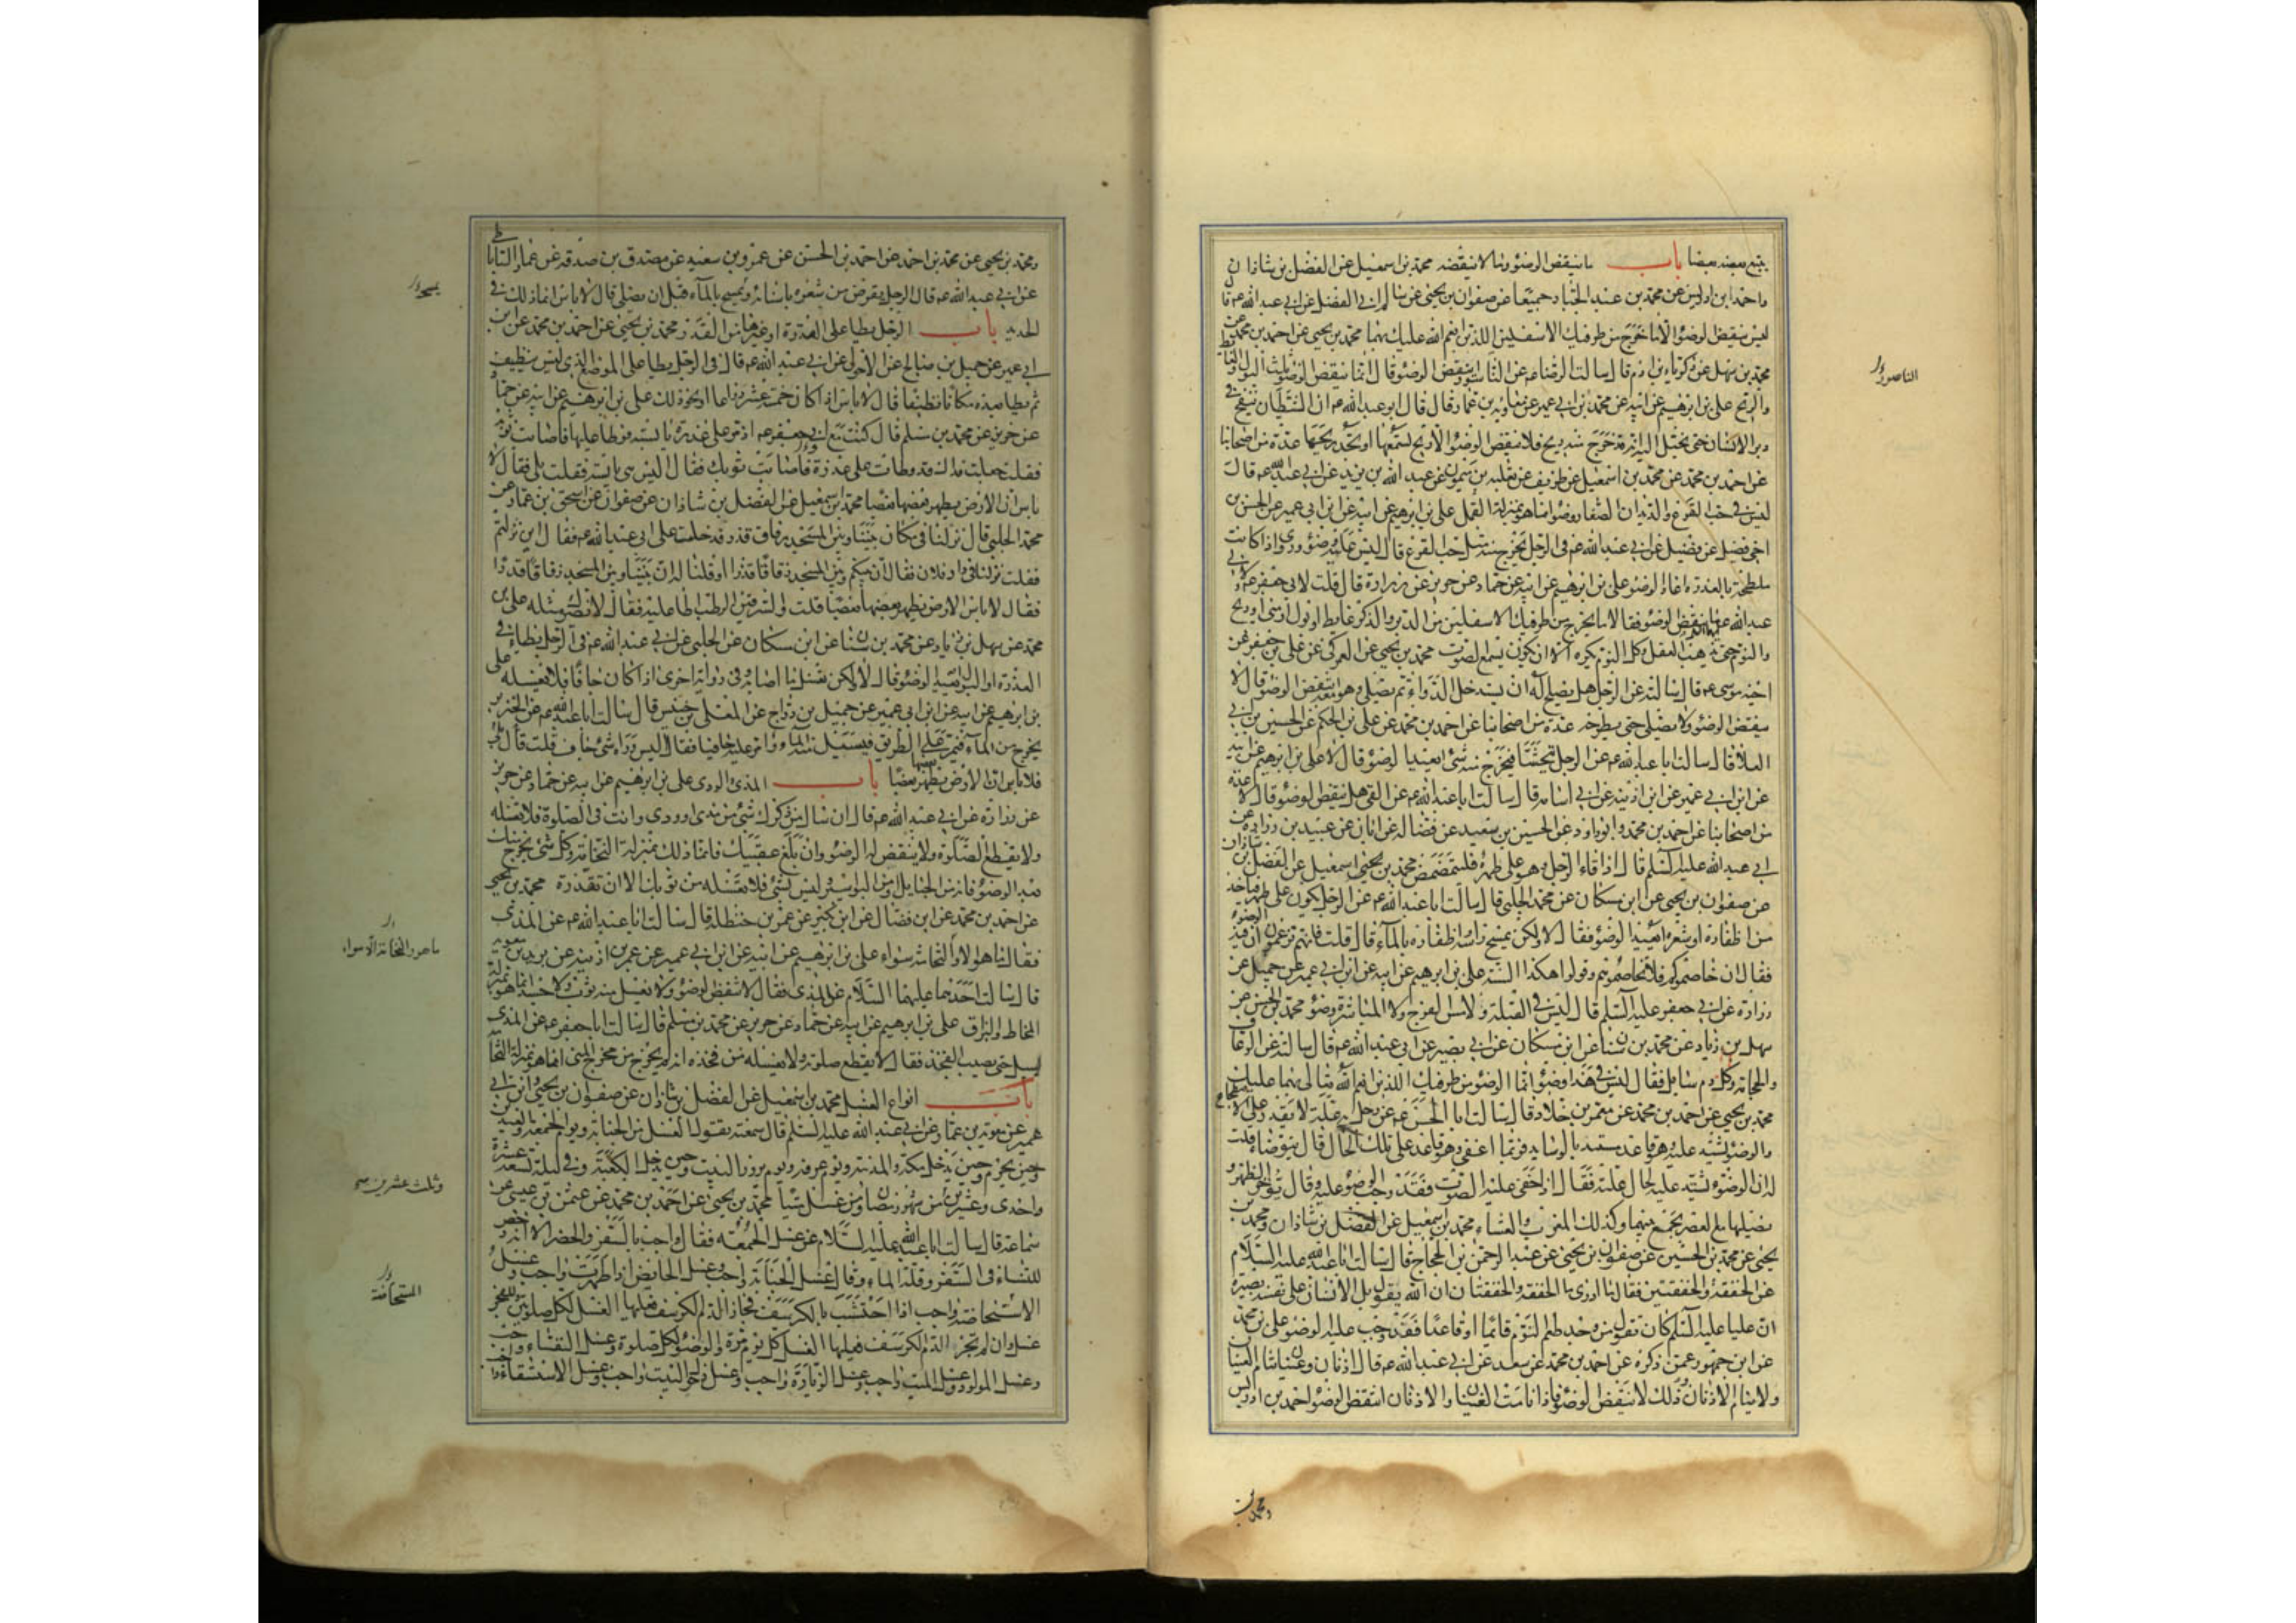 يتبع بعضه بعضا باب ما ينقض الوضوء وما لا ينقضه محمد بن اسمعيل عن الفضل بن شاذان
واحمد بن ادريس عن محمد بن عبد الجبار جميعا عن صفوان بن يحيى عن سالم ابي الفضل عن ابي عبد الله عم قا
ليس ينقض الوضوء الا ما خرج من طرفيك الاسفلين اللذين انعم الله عليك بهما محمد بن يحيى عن احمد بن محمد عن
محمد بن سهل عن زكريا بن ادم قال سالت الرضا عم عن الناسور اينقض الوضوء قال انما ينقض الوضوء ثلث البول والغايط
والريح علي بن ابرهيم عن ابيه عن محمد بن ابي عمير عن معاوية بن عمار قال قال ابو عبد الله عم ان الشيطان ينفخ في
دبر الانسان حتى يخيل اليه انه قد خرج منه ريح فلا ينقض الوضوء الا ريح تسمعها او تجد ريحها عدة من اصحابنا
عن احمد بن محمد عن محمد بن اسمعيل عن ظريف عن ثعلبه بن ميمون عن عبد الله بن يزيد عن ابي عبد الله عم قال
ليس في حب القرع والديدان الصغار وضوء انما هو بمنزلة القمل علي بن ابرهيم عن ابيه عن ابن ابي عمير عن الحسن بن
اخي فضيل عن فضيل عن ابي عبد الله عم في الرجل يخرج منه مثل حب القرع قال ليس عليه وضوء وروي اذا كانت
ملطخة بالعذرة اعاد الوضوء علي بن ابرهيم عن ابيه عن حماد عن حريز عن زرارة قال قلت لابي جعفر ولابي
عبد الله عم ما ينقض الوضوء فقالا ما يخرج من طرفيك الاسفلين من الدبر والذكر غايط او بول او مني او ريح
والنوم حتى يذهب العقل وكل النوم يكره الا ان يكون تسمع الصوت محمد بن يحيى عن العمركي عن علي بن جعفر عن
اخيه موسى عم قال سالته عن الرجل هل يصلح له ان يستدخل الدواء ثم يصلي وهو معه اينقض الوضوء قال لا
ينقض الوضوء ولا يصلي حتى يطرحه عدة من اصحابنا عن احمد بن محمد عن علي بن الحكم عن الحسين بن ابي
العلا قال سالت ابا عبد الله عم عن الرجل يتجشا فيخرج منه شئ ايعيد الوضوء قال لا علي بن ابرهيم عن ابيه
عن ابن ابي عمير عن ابن اذينه عن ابي اسامه قال سالت ابا عبد الله عم عن القي هل ينقض الوضوء قال لا عدة
من اصحابنا عن احمد بن محمد وابو داود عن الحسين بن سعيد عن فضاله عن ابان عن عبيد بن زراره عن
ابي عبد الله عليه السلم قال اذا قاء الرجل وهو على طهر فليتمضمض محمد بن اسمعيل عن الفضل بن شاذان
عن صفوان بن يحيى عن ابن مسكان عن محمد الحلبي قال سالت ابا عبد الله عم عن الرجل يكون على طهر فياخذ
من اظفاره او شعره ايعيد الوضوء فقال لا ولكن يمسح راسه واظفاره بالماء قال قلت فانهم يزعمون ان فيه الوضوء
فقال ان خاصموكم فلا تخاصموهم وقولوا هكذا السنة علي بن ابرهيم عن ابيه عن ابن ابي عمير عن جميل عن
زرارة عن ابي جعفر عليه السلم قال ليس في القبلة ولا مس الفرج ولا المباشرة وضوء محمد بن الحسن عن
سهل بن زياد عن محمد بن سنان عن ابن مسكان عن ابي بصير عن ابي عبد الله عم قال سالته عن الرعاف
والحجامه وكل دم سايل فقال ليس في هذا وضوء انما الوضوء من طرفيك اللذين انعم الله تعالى بهما عليك
محمد بن يحيى عن احمد بن محمد عن معمر بن خلاد قال سالت ابا الحسن عم عن رجل به علة لا يقدر على الاضطجاع
والوضوء يشتد عليه وهو قاعد مستند بالوسايد فربما اغفى وهو قاعد على تلك الحال قال يتوضاء قلت
له ان الوضوء يشتد عليه لحال علته فقال اذا خفي عليه الصوت فقد وجب الوضوء عليه وقال يؤخر الظهر و
يصليها مع العصر يجمع بينهما وكذلك المغرب والعشاء محمد بن اسمعيل عن الفضل بن شاذان ومحمد بن
يحيى عن محمد بن الحسين عن صفوان بن يحيى عن عبد الرحمن بن الحجاج قال سالت ابا عبد الله عليه السلام
عن الخفقة والخفقتين فقال ما ادري ما الخفقة والخفقتان ان الله يقول بل الانسان على نفسه بصيره
ان عليا عليه السلم كان يقول من وجد طعم النوم قائما او قاعدا فقد وجب عليه الوضوء علي بن محمد
عن ابن جمهور عمن ذكره عن احمد بن محمد عن سعد عن ابي عبد الله عم قال اذنان وعينان تنام العينان
ولا ينام الاذنان وذلك لا ينقض الوضوء فاذا نامت العينان والاذنان انتقض الوضوء احمد بن ادريس
الناصور
ومحمد بن
ومحمد بن يحيى عن محمد بن احمد عن احمد بن الحسن عن عمرو بن سعيد عن مصدق بن صدقه عن عمار الساباطي
عن ابي عبد الله عم قال الرجل يقرض من شعره باسنانه ويمسح بالماء قبل ان يصلي قال لا باس انما ذلك في
الحديد باب الرجل يطا على العذرة او غيرها من القذر محمد بن يحيى عن احمد بن محمد عن ابن
ابي عمير عن جميل بن صالح عن الاحول عن ابي عبد الله عم قال في الرجل يطا على الموضع الذي ليس بنظيف
ثم يطا بعده مكانا نظيفا قال لا باس اذا كان خمسة عشر ذراعا او نحو ذلك علي بن ابرهيم عن ابيه عن حما
عن حريز عن محمد بن مسلم قال كنت مع ابي جعفر عم اذ مر على عذرة يابسه فوطا عليها فاصابت ثوبه
فقلت جعلت فداك قد وطات على عذرة فاصابت ثوبك فقال اليس هي يابسه فقلت بلى فقال لا
باس ان الارض يطهر بعضها بعضا محمد بن اسمعيل عن الفضل بن شاذان عن صفوان عن اسحق بن عمار عن
محمد الحلبي قال نزلنا في مكان بيننا وبين المسجد زقاق قذر فدخلت على ابي عبد الله عم فقال اين نزلتم
فقلت نزلنا في دار فلان فقال ان بينكم وبين المسجد زقاقا قذرا او قلنا له ان بيننا وبين المسجد زقاقا قذرا
فقال لا باس الارض يطهر بعضها بعضا قلت والسرقين الرطب اطا عليه فقال لا يضرك مثله علي بن
محمد عن سهل بن زياد عن محمد بن سنان عن ابن مسكان عن الحلبي عن ابي عبد الله عم في الرجل يطا في
العذرة او البول ايعيد الوضوء قال لا ولكن يغسل ما اصابه وفي رواية اخرى اذا كان جافا فلا يغسله علي
بن ابرهيم عن ابيه عن ابن ابي عمير عن جميل بن دراج عن المعلى بن خنيس قال سالت ابا عبد الله عم عن الخنزير
يخرج من الماء فيمر على الطريق فيسيل منه الماء وامر عليه حافيا فقال اليس وراءه شئ جاف قلت قال بلى
فلا باس ان الارض يطهر بعضها بعضا باب المذي والودي علي بن ابرهيم عن ابيه عن حماد عن حريز
عن زرارة عن ابي عبد الله عم قال ان سال من ذكرك شئ من مذي او ودي وانت في الصلوة فلا تغسله
ولا يقطع الصلوة ولا ينقض له الوضوء وان بلغ عقبيك فانما ذلك بمنزلة النخامة وكل شئ يخرج منك
بعد الوضوء فانه من الحبايل او من البواسير وليس بشئ فلا تغسله من ثوبك الا ان تقذره محمد بن يحيى
عن احمد بن محمد عن ابن فضال عن ابن بكير عن عمر بن حنظلة قال سالت ابا عبد الله عم عن المذي
فقال ما هو والنخامة سواء علي بن ابرهيم عن ابيه عن ابن ابي عمير عن عمر بن اذينه عن بريد بن معويه
قال سالت احدهما عليهما السلام عن المذي فقال لا ينقض الوضوء ولا يغسل منه ثوب ولا جسد انما هو بمنزلة
المخاط والبزاق علي بن ابرهيم عن ابيه عن حماد عن حريز عن محمد بن مسلم قال سالت ابا جعفر عم عن المذي
يسيل حتى يصيب الفخذ فقال لا يقطع صلوته ولا يغسله من فخذه انه لم يخرج من مخرج المني انما هو بمنزلة النخا
باب انواع الغسل محمد بن اسمعيل عن الفضل بن شاذان عن صفوان بن يحيى وابن ابي
عمير عن معوية بن عمار عن ابي عبد الله عليه السلم قال سمعته يقول الغسل من الجنابة ويوم الجمعة والعيدين
وحين يحرم وحين يدخل مكة والمدينة ويوم عرفه ويوم يزور البيت وحين يدخل الكعبة وفي ليلة تسعة عشرة
واحدى وعشرين من شهر رمضان ومن غسل ميتا محمد بن يحيى عن احمد بن محمد عن عثمن بن عيسى عن
سماعة قال سالت ابا عبد الله عليه السلام عن غسل الجمعة فقال واجب بالسفر والحضر الا انه رخص
للنساء في السفر وقلة الماء وقال غسل الجنابة واجب وغسل الحايض اذا طهرت واجب وغسل
الاستحاضة واجب اذا احتشت بالكرسف فجاز الدم الكرسف فعليها الغسل لكل صلوتين وللفجر
غسل وان لم يجز الدم الكرسف فعليها الغسل كل يوم مرة والوضوء لكل صلوة وغسل النفساء واجب
وغسل المولود واجب وغسل الميت واجب وغسل الزيارة واجب وغسل دخول البيت واجب وغسل الاستسقاء واجب
ما هو والنخامة الا سواء
وثلث عشرين
المستحاضة